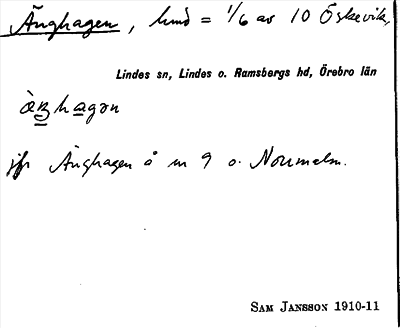 Änghagen, hmd = 1/6 av 10 Öskevik,
Lindes sn, Lindes o. Ramsbergs hd, Örebro län
jfr Änghagen å nr 9 o. Norrmalm.
Sam Jansson 1910-11